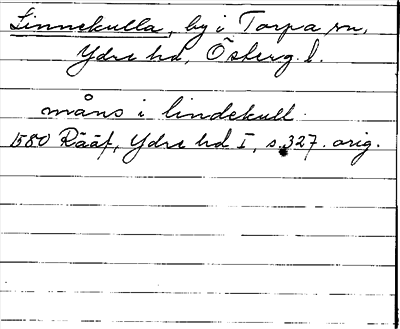 Linnekulla, by i Torpa sn,
Ydre hd, Österg. l.
måns i lindekull.
1580 Rääf, Ydre hd I, s. 327. orig.